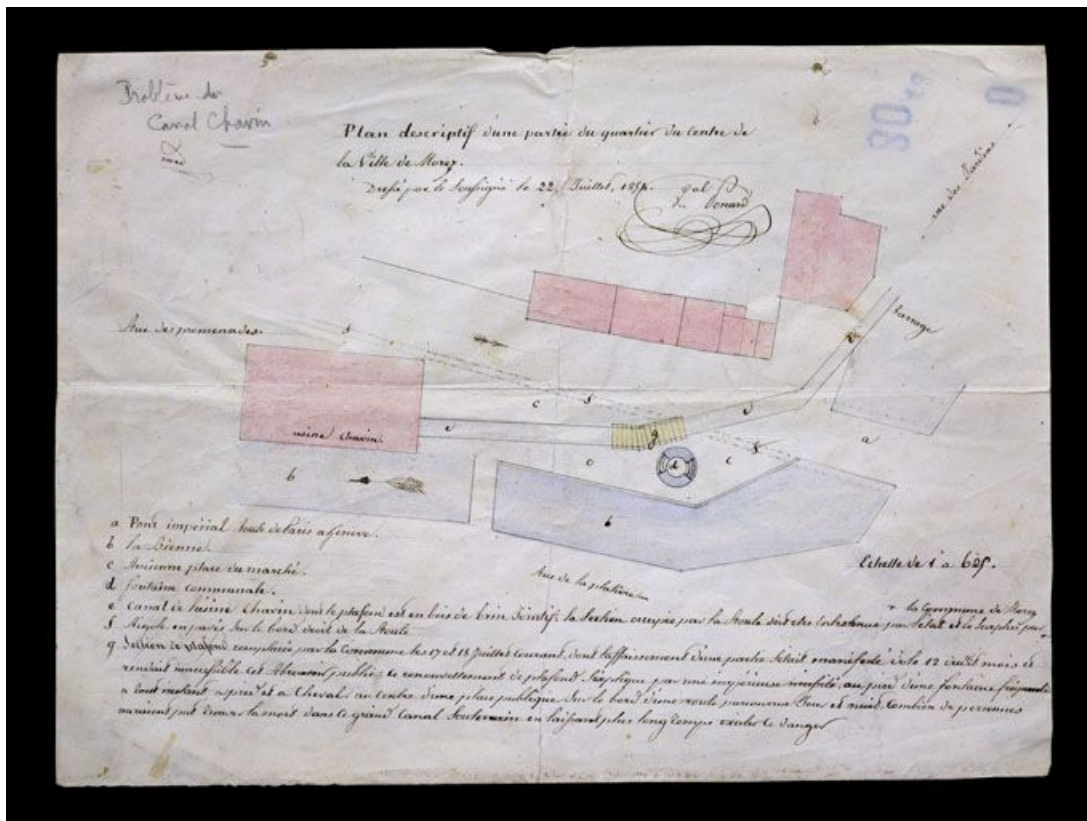 Problème du
Canal Chavin
30
0
Plan descriptif d'une partie du quartier du centre de
la Ville de Morez.
Dressé par le Soussigné le 22 Juillet, 1854.
rue des Jardins
barrage
Rue des promenades.
f
c
f
e
e
g
usine chavin.
c
d
c
f
a
b
b
a Pont impérial Route de Paris a Geneve.
b la Bienne.
c Ancienne place du marché.
d fontaine communale.
Rue de la platière
Echelle de 1 a 625.
la Commune de Morez
e Canal de l'usine Chavin dont le plafond est en bois de brin la Section occupée par la Route doit etre entretenue par l'état et le Surplus par
f Rigole en pavés Sur le bord droit de la Route
g Section de plafond remplacée par la Commune les 17 et 18 Juillet Courant, dont l'affaissement d'une partie s'était manifesté dès le 12 dudit mois et
rendait inaccessible cet Abreuvoir public; le renouvellement de plafond S'explique par une impérieuse nécessité, au pied d'une fontaine fréquentée
a tout instant a pied et a Cheval, au Centre d'une place publique Sur le bord d'une route parcourue Jour et nuit. Combien de personnes
auraient put trouver la mort dans ce grand Canal Souterrain en laissant plus long temps exister ce danger